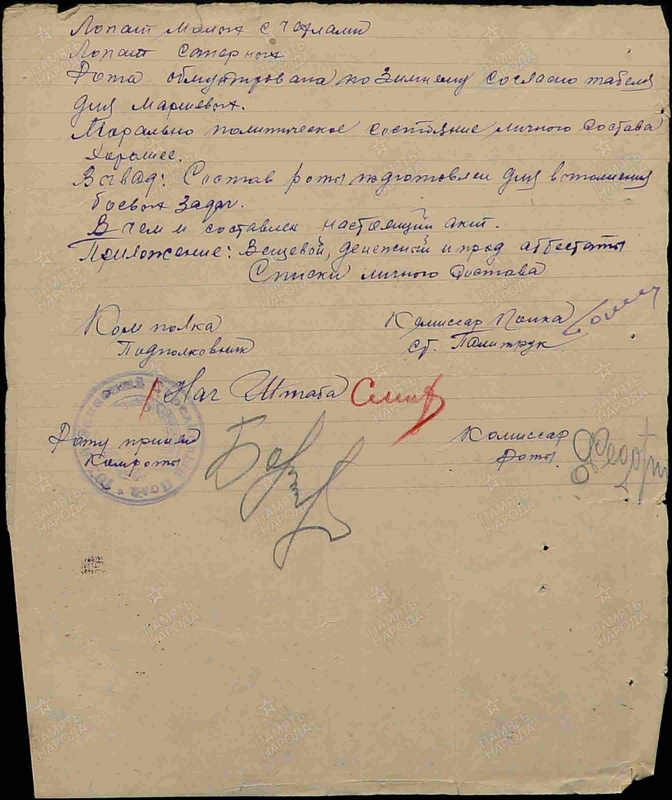 Лопат малых с чехлами
Лопат саперных
Рота обмундирована по зимнему согласно табеля
для маршевых.
Морально политическое состояние личного состава
хорошее.
Вывод: Состав роты подготовлен для выполнения
боевых задач.
В чем и составлен настоящий акт.
Приложение: Вещевой, денежный и прод аттестаты
Списки личного состава
Ком полка
Подполковник
Комиссар Полка
ст. Политрук
Нач Штаба
Роту принял
Комроты
Комиссар
роты
ПАМЯТЬ
НАРОДА